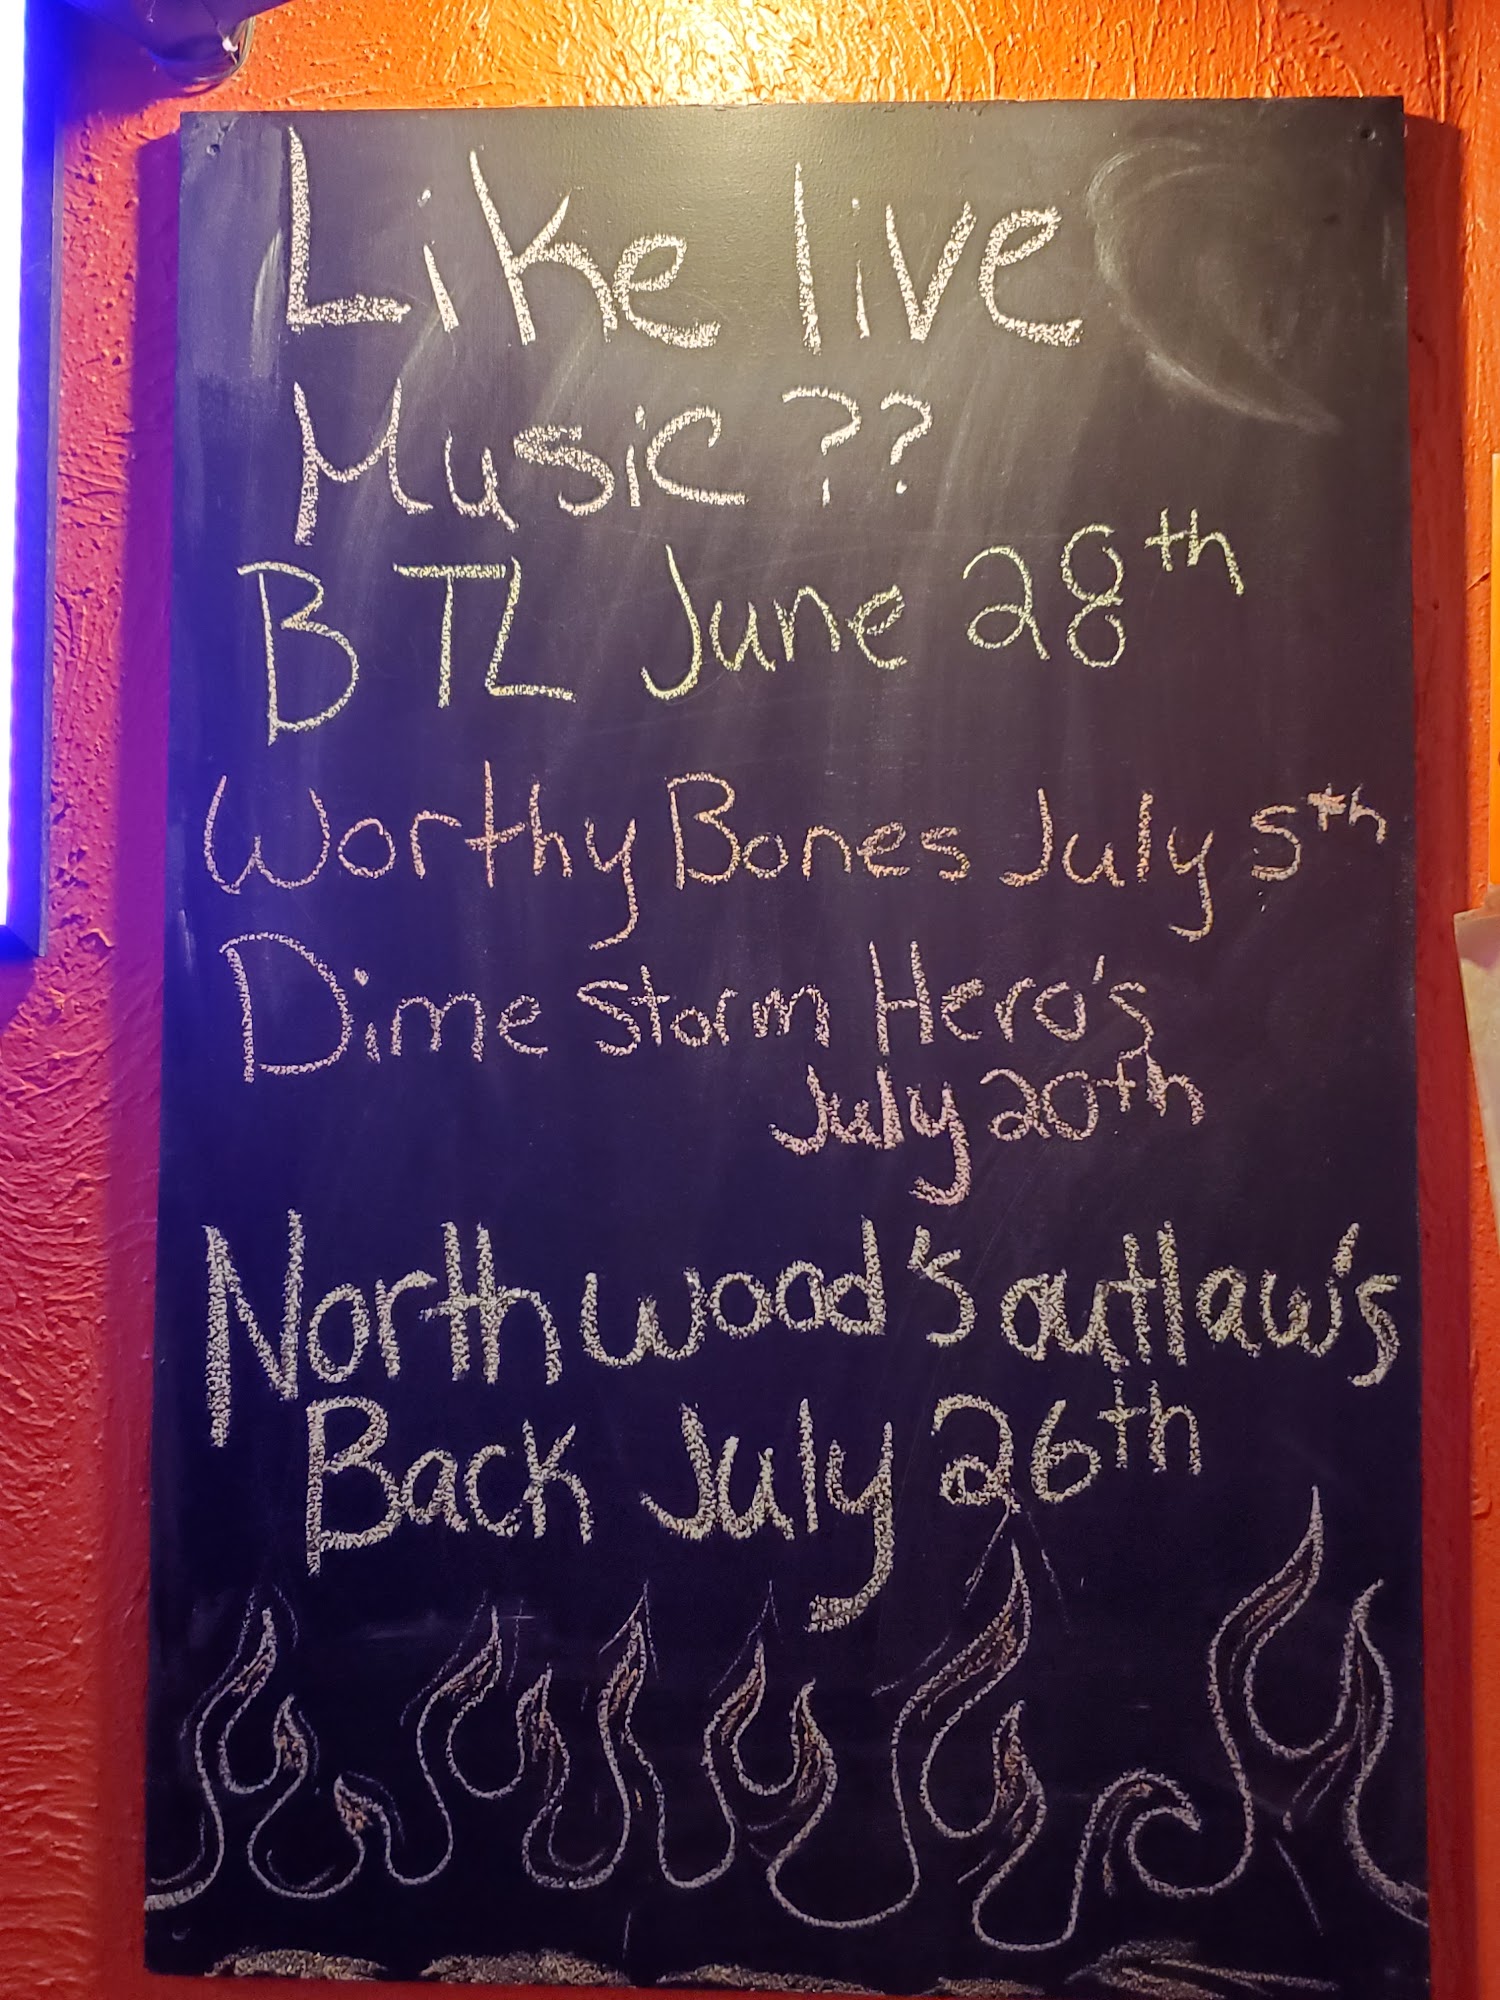 Like live
Music??
BTL June 28th
Worthy Bones July 5th
Dime Storm Hero's
July 20th
Northwood's outlaw's
Back July 26th